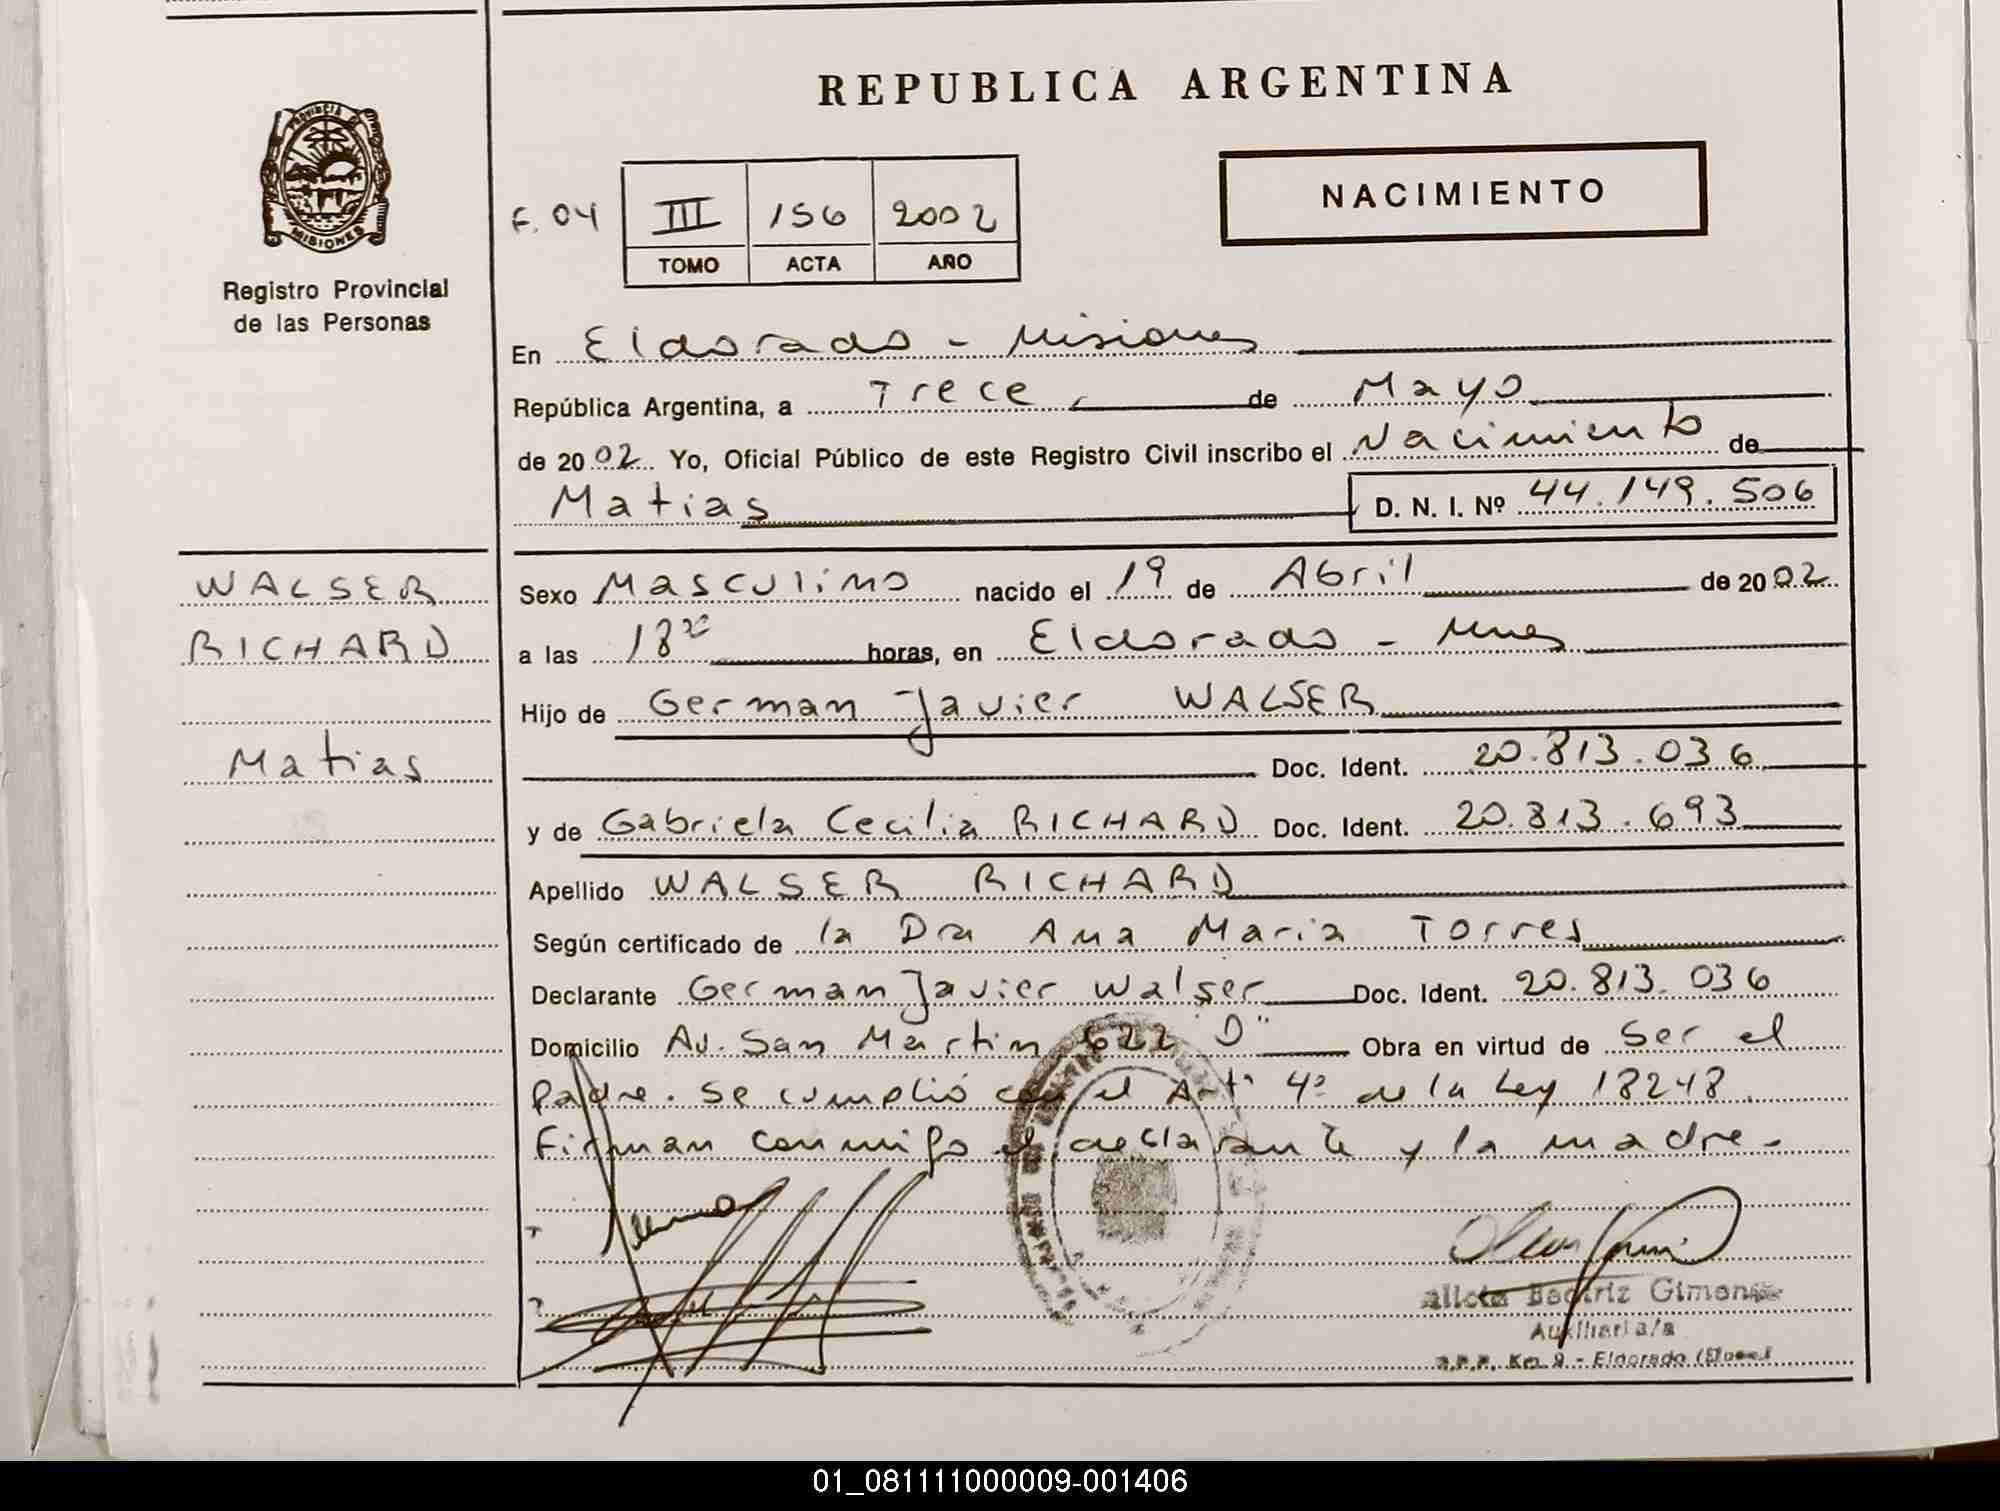 REPUBLICA ARGENTINA
PROVINCIA DE
MISIONES
Registro Provincial
de las Personas
NACIMIENTO
F. 04 III 156 2002
TOMO ACTA AÑO
En Eldorado - Misiones
República Argentina, a Trece de Mayo
de 2002 Yo, Oficial Público de este Registro Civil inscribo el Nacimiento de
Matias D. N. I. Nº 44.149.506
WALSER
RICHARD
Matias
Sexo Masculino nacido el 19 de Abril de 2002
a las 18 horas, en Eldorado - Mnes
Hijo de German Javier WALSER
Doc. Ident. 20.813.036
y de Gabriela Cecilia RICHARD Doc. Ident. 20.813.693
Apellido WALSER RICHARD
Según certificado de la Dra Ana Maria Torres
Declarante German Javier Walser Doc. Ident. 20.813.036
Domicilio Av. San Martin 622 "D" Obra en virtud de Ser el
Padre. Se cumplió con el Artº 4º de la Ley 18248.
Firman conmigo el declarante y la madre.-
Beatriz Gimenez
Auxiliar a/a
Km. 9 - Eldorado
01_081111000009-001406